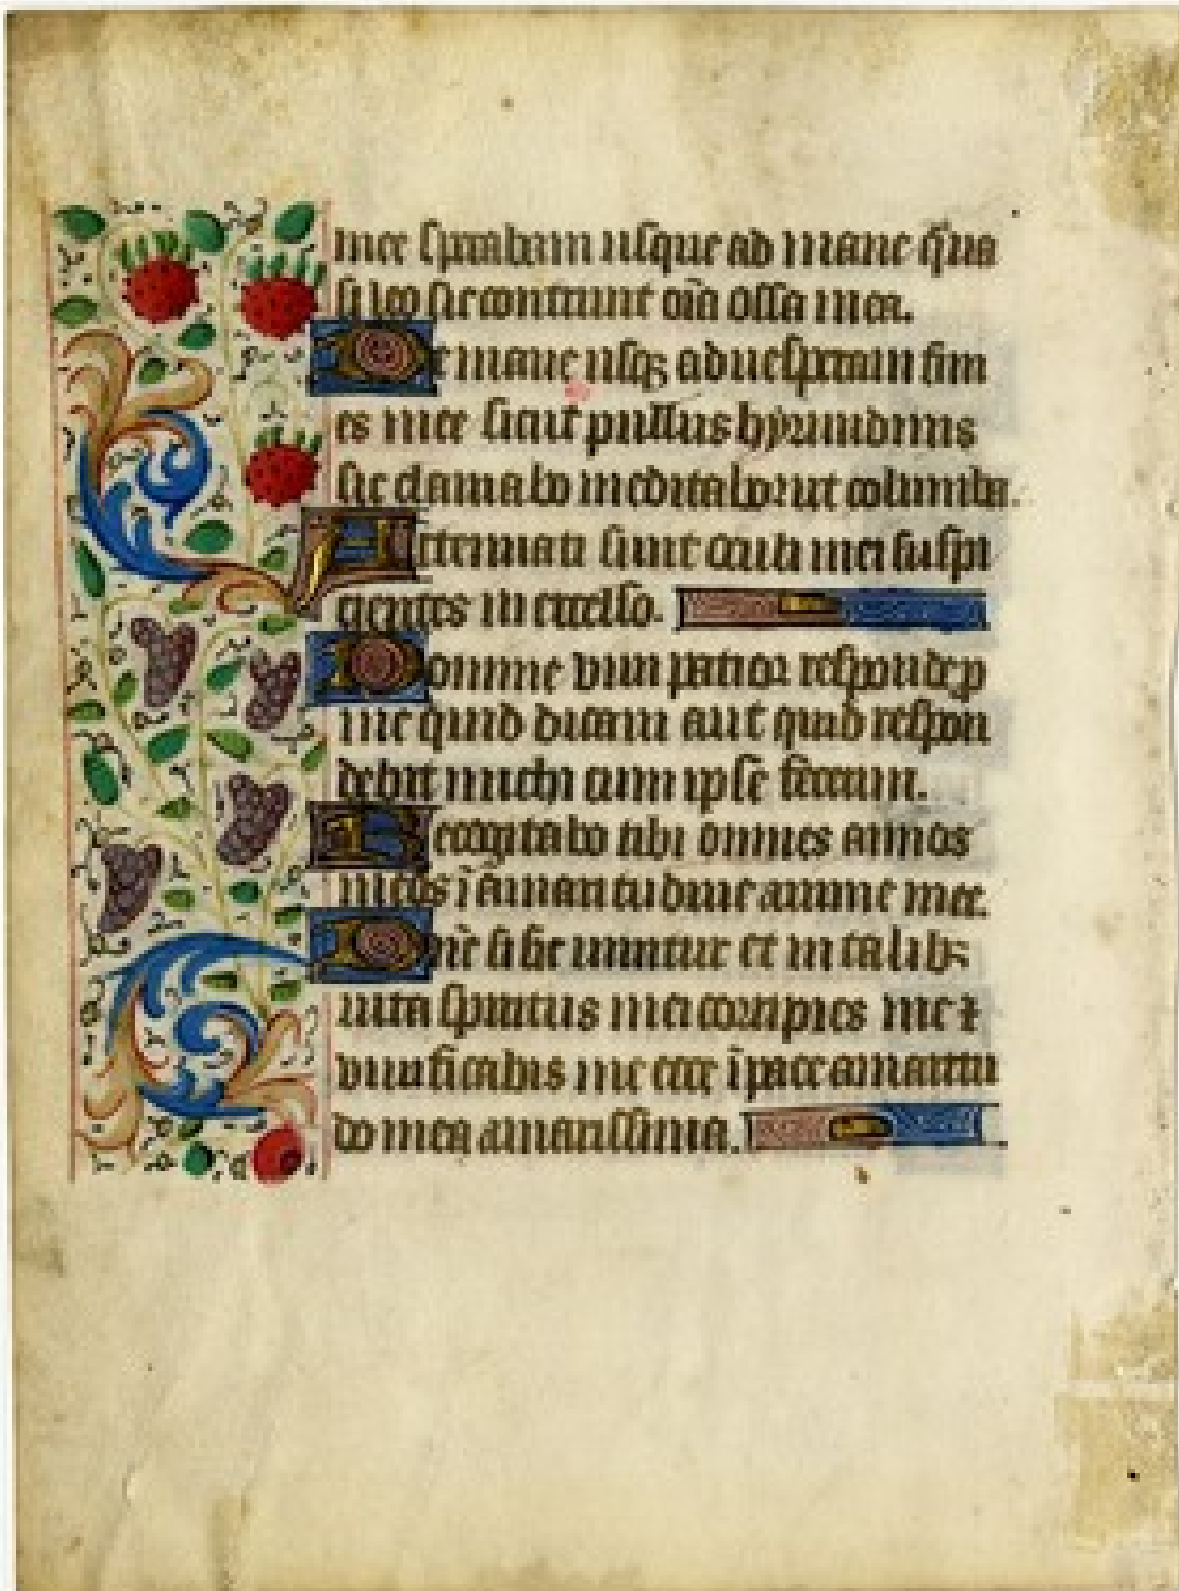 mee sperabam usque ad mane q̃ua
si leo sic contriuit oĩa ossa mea.
De mane usqꝫ ad uesperam fini
es mee sicut pullus hyrundinis
sic clamabo meditabor ut columba.
Attenuati sunt oculi mei suspi
cientes in excelso.
Domine vim patior responde ꝓ
me quid dicam aut quid respon
debit michi cum ipse fecerim.
Recogitabo tibi omnes annos
meos ĩ amaritudine anime mee.
Dñe si sic uiuitur et in talibꝫ
uita spiritus mei corripies me ⁊
viuificabis me ecce ĩ pace amaritu
do mea amarissima.